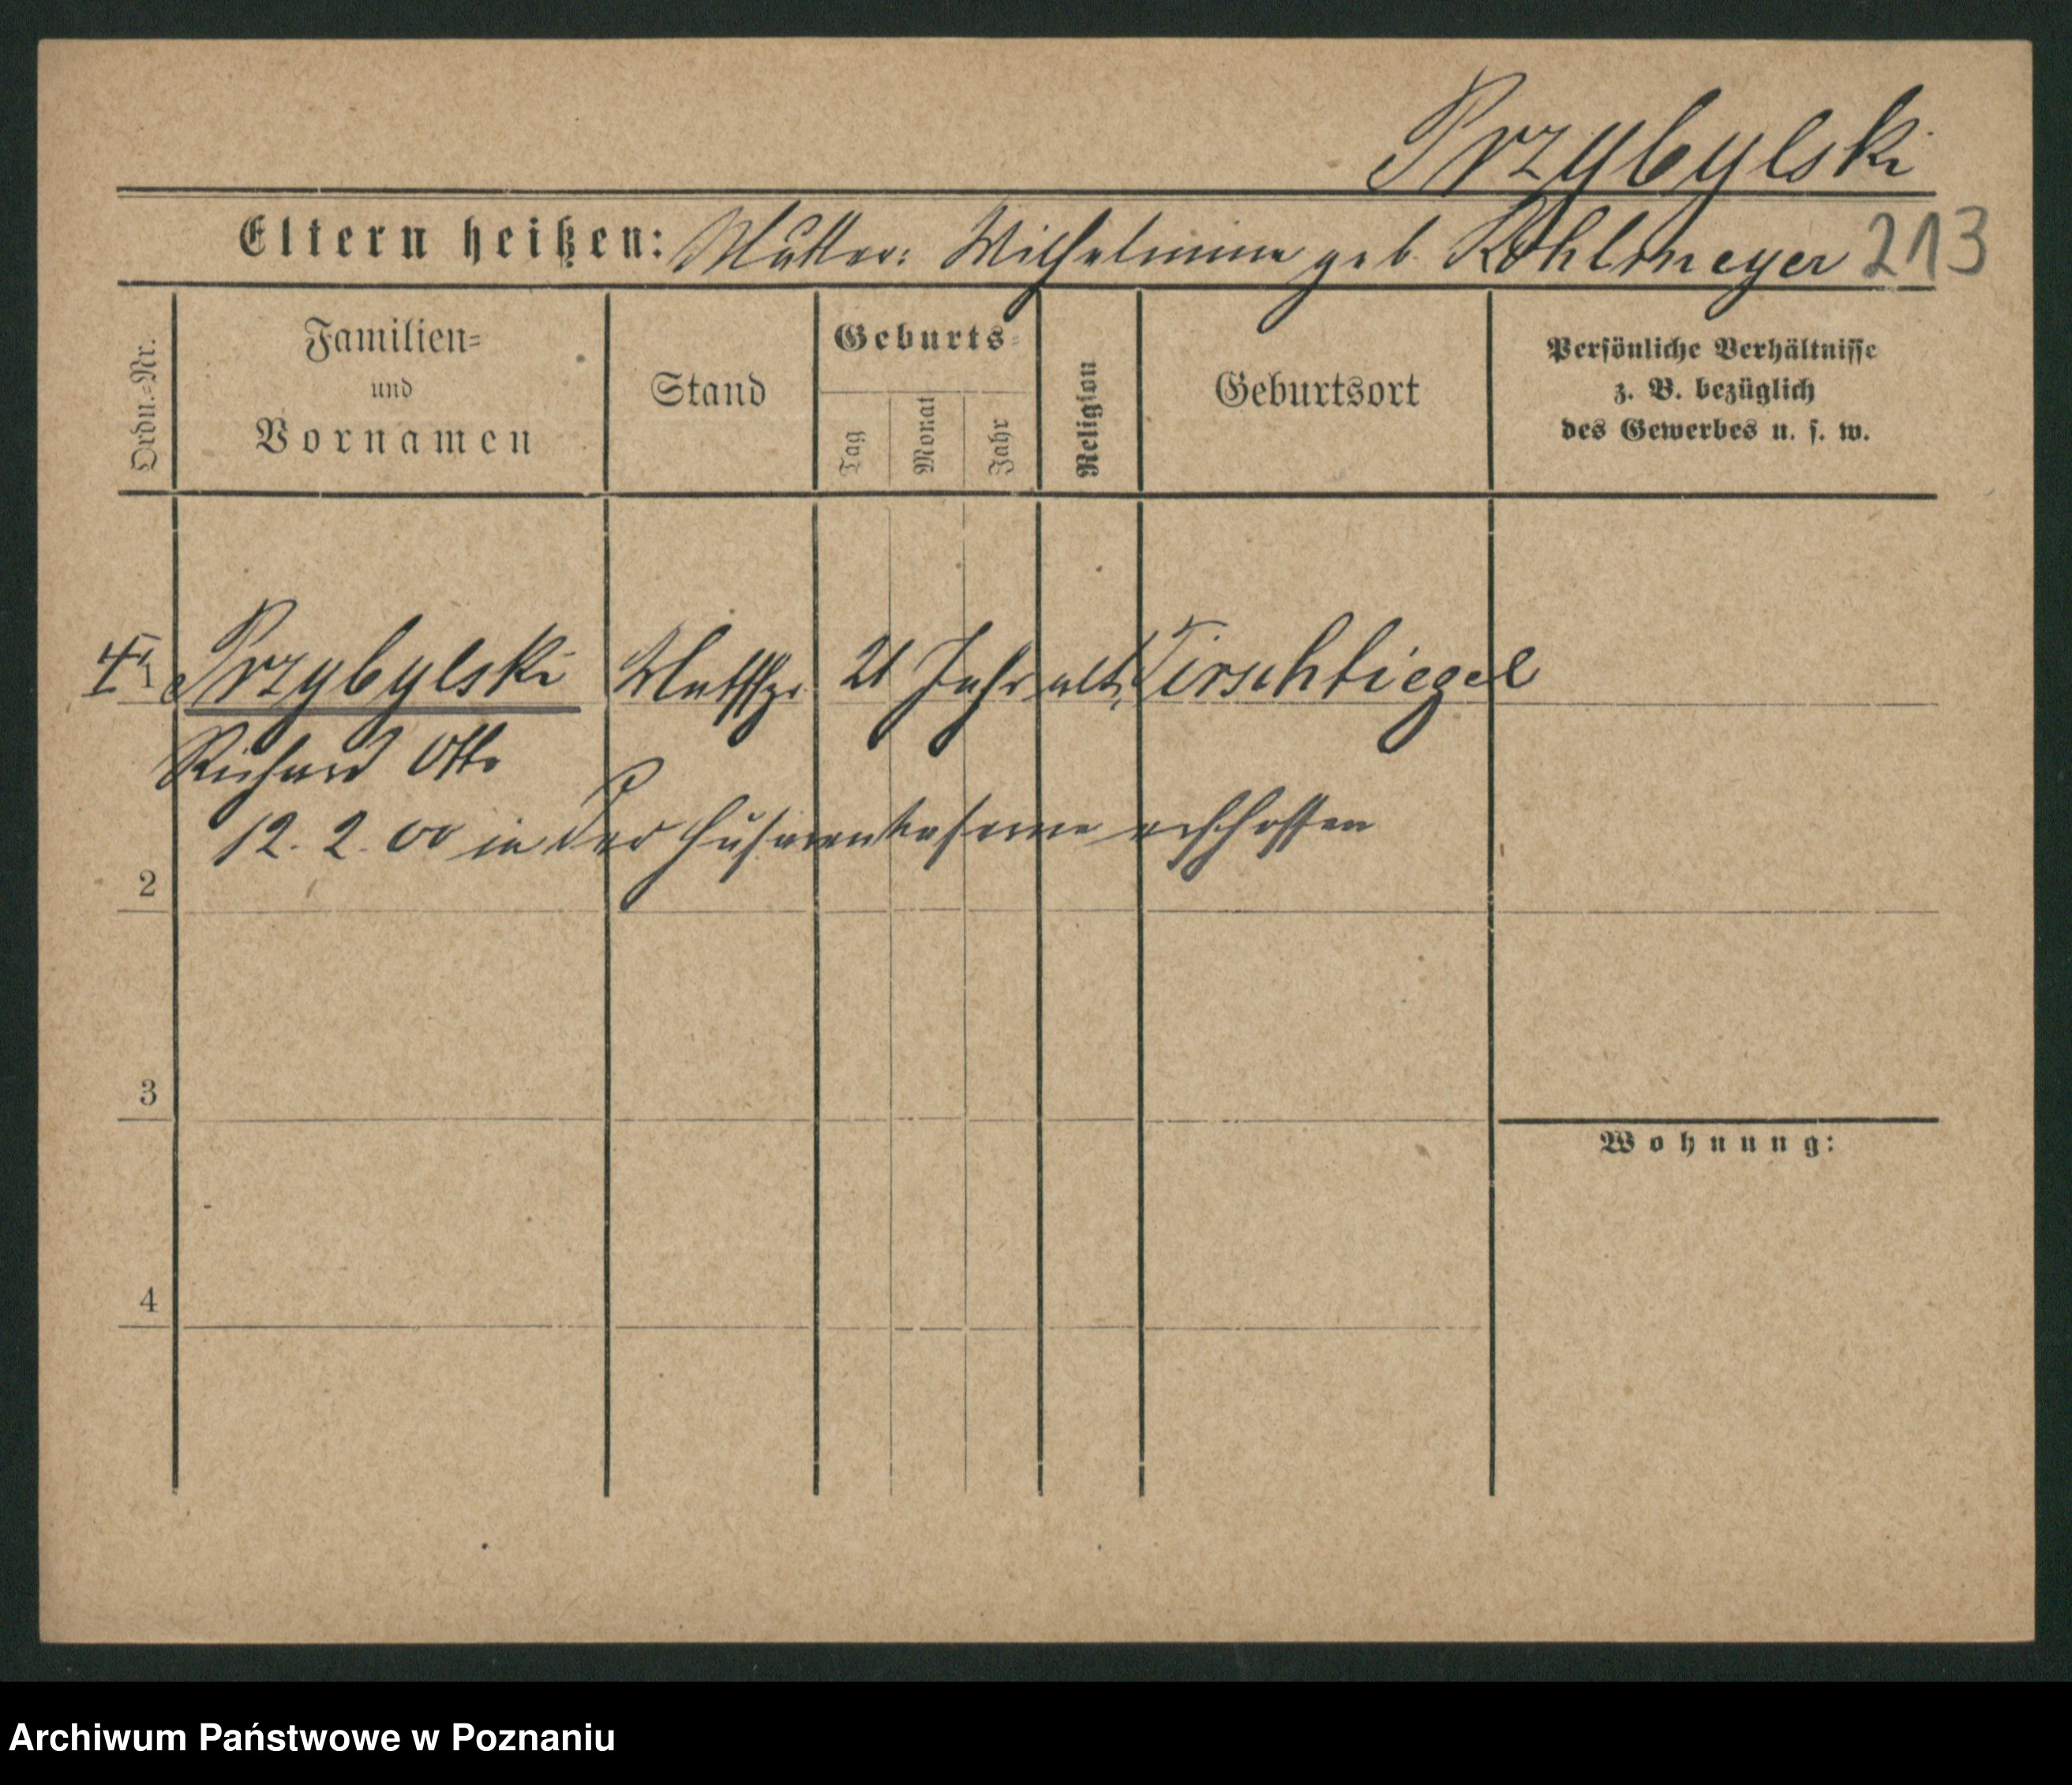 Przybylski
Eltern heißen: Mutter: Wilhelmine geb. Kohlmeyer 213
Ordn.-Nr.
Familien-
und
Vornamen
Stand
Geburts-
Tag
Monat
Jahr
Religion
Geburtsort
Persönliche Verhältnisse
z. B. bezüglich
des Gewerbes u. s. w.
Przybylski 21 Jahr alt, Tirschtiegel
Richard Otto
12. 2. 00 in der Husarenkaserne erschossen
2
3
4
Wohnung:
Archiwum Państwowe w Poznaniu